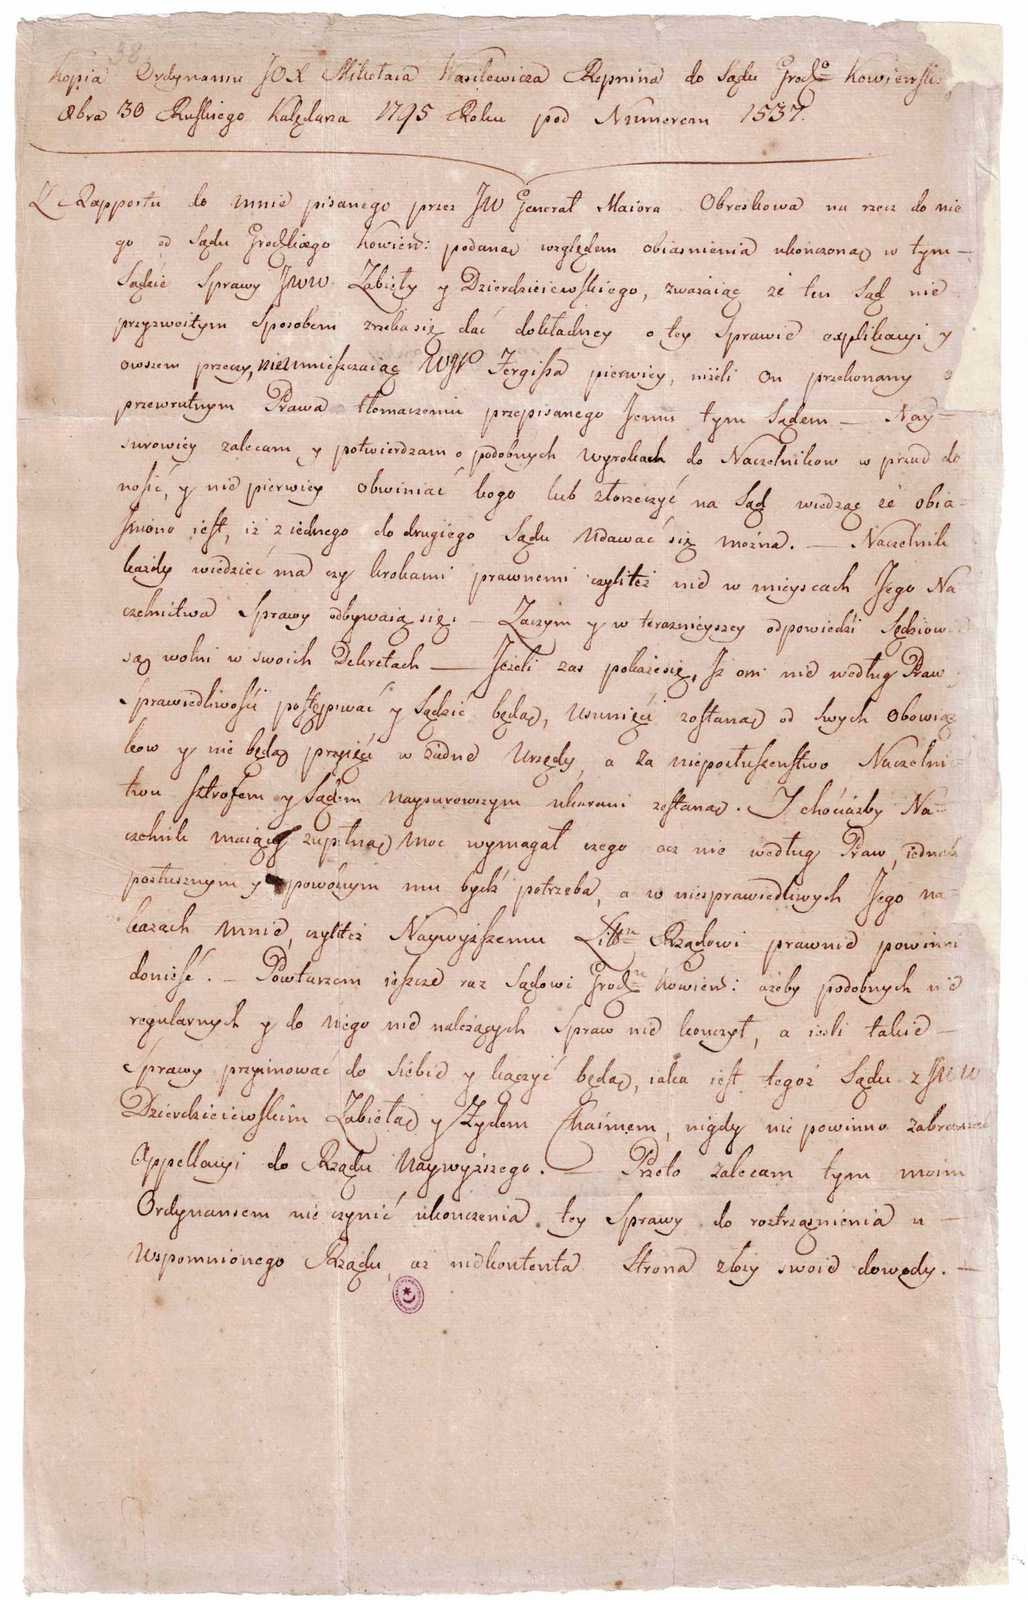 Kopia Ordynansu JOX Mikołaia Wasilewicza Repnina do Sądu Grodgo Kowieńsk
8bra 30 Ruskiego Kalędarza 1795 Roku pod Numerem 1537.
Z Rapportu do mnie pisanego przez JW Generał Maiora Obreskowa na rzecz do nie
go od Sądu Grodzkiego Kowień: podaną względem obiasnienia ukończoną w tym —
Sądzie Sprawy JWW Zabiełły y Dzierdzieiewskiego, zwazaiąc że ten Sąd nie
przyzwoitym sposobem zrzeka się dać dokładney o tey Sprawie explikacyi y
owszem przeczy, nieumieszczaiąc WJP Jergissa pierwiey, niżeli on przekonany o
przewrutnym Prawa tłomaczeniu przepisanego Jemu tym Sądem — Nay-
surowiey zalecam y potwierdzam o podobnych wyrokach do Naczelnikow w przud do
nosić, y nie pierwiey obwiniać kogo lub złorzeczyć na Sąd wiedząc że obia-
śniono iest, iż z iednego do drugiego Sądu udawać się można. — Naczelnik
każdy wiedzieć ma czy krokami prawnemi czyliteż nie w mieyscach Jego Na
czelnictwa Sprawy odbywaią się: — Zaczym y w teraznieyszey odpowiedzi Sędziow
są wolni w swoich Dekretach — Jeżeli zas pokaże się, Iż oni nie według Praw
Sprawiedliwości postępować y Sądzić będą, usunięci zostaną od swych obowiąz
kow y nie będą przyięci w żadne Urzędy, a za nieposłuszenstwo Naczelni-
ctwu sztrofem y Sądem naysurowszym ukarani zostaną. J chociażby Na-
czelnik maiący zupełną moc wymagał czego acz nie według Praw, iednak
posłusznym y powolnym mu bydź potrzeba, a w niesprawiedliwych Jego na-
kazach mnie, czyliteż Naywyższemu Rządowi prawnie powinni
donieść. — Powtarzam ieszcze raz Sądowi Grod Kowień: ażeby podobnych nie
regularnych y do niego nie należących Spraw nie konczył, a iesli takie —
Sprawy przyimować do siebie y kączyć będą, iaka iest tegoż Sądu z JWW
Dzierdzieiewskim Zabiełłą y Żydem Chaimem, nigdy nie powinno zabraniać
Appellacyi do Rządu Naywyższego. — Przeto zalecam tym moim
Ordynansem nie czynić ukończenia tey Sprawy do roztrząsnienia u —
Wspomnionego Rządu, aż niekontenta Strona złoży swoie dowody. —